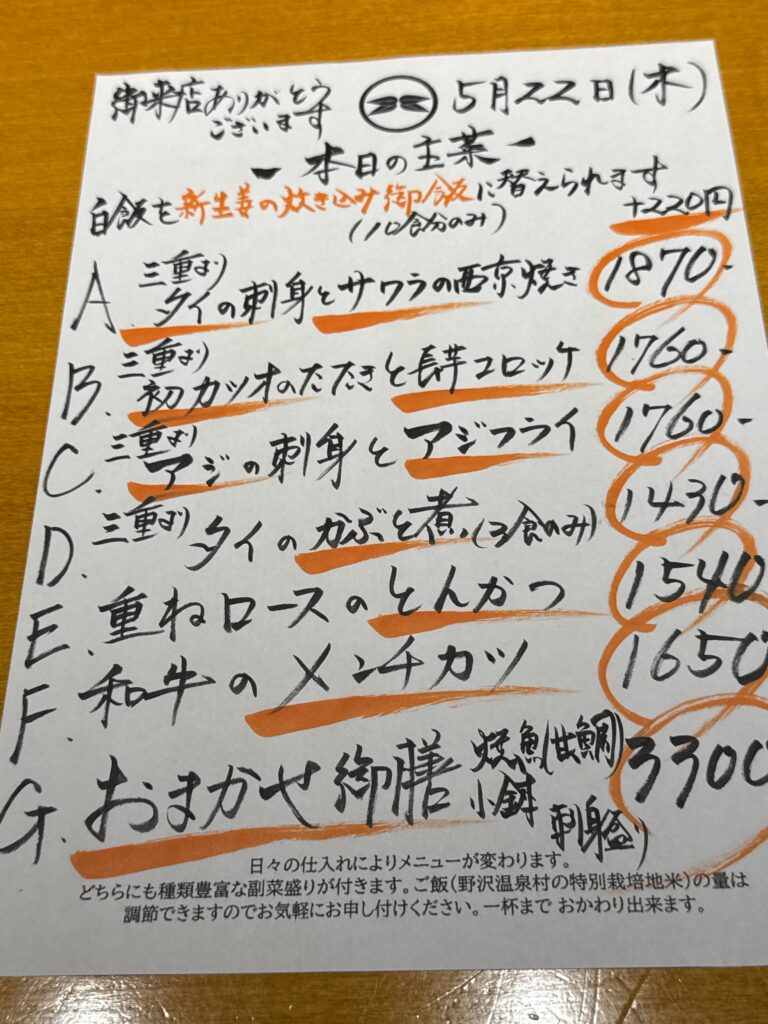 御来店ありがとう
ございます
5月22日(木)
- 本日の主菜 -
白飯を新生姜の炊き込み御飯に替えられます
(10食分のみ)
+220円
A. 三重より
タイの刺身とサワラの西京焼き 1870-
B. 三重より
初カツオのたたきと長芋コロッケ 1760-
C. 三重より
アジの刺身とアジフライ 1760-
D. 三重より
タイのかぶと煮(3食のみ) 1430-
E. 重ねロースのとんかつ 1540
F. 和牛のメンチカツ 1650
G. おまかせ御膳 焼魚(甘鯛) 3300
小鉢
刺身盛り
日々の仕入れによりメニューが変わります。
どちらにも種類豊富な副菜盛りが付きます。ご飯(野沢温泉村の特別栽培地米)の量は
調節できますのでお気軽にお申し付けください。一杯まで おかわり出来ます。